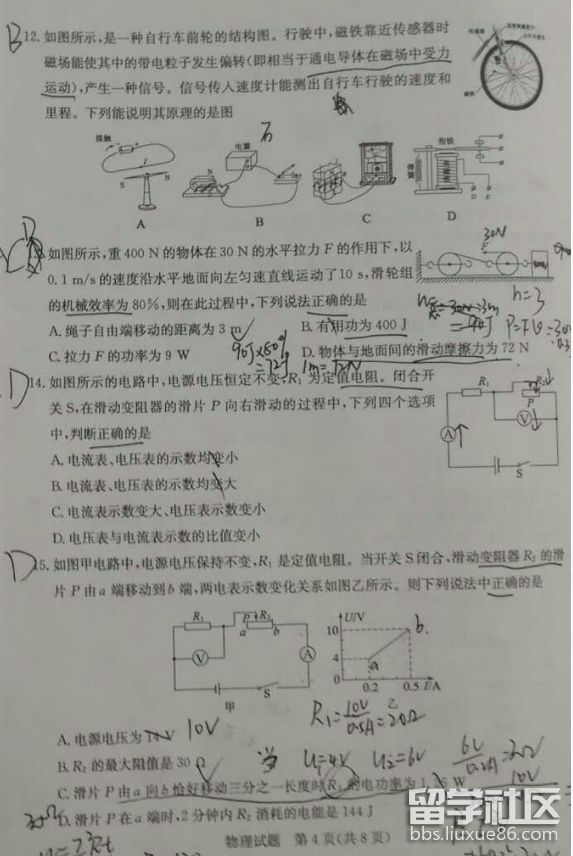 B 12. 如图所示,是一种自行车前轮的结构图。行驶中,磁铁靠近传感器时
磁场能使其中的带电粒子发生偏转(即相当于通电导体在磁场中受力
运动),产生一种信号。信号传入速度计能测出自行车行驶的速度和
里程。下列能说明其原理的是图
接触
电源
衔铁
弹簧
S
N
A
B
C
D
如图所示,重 400 N 的物体在 30 N 的水平拉力 F 的作用下,以
0.1 m/s 的速度沿水平地面向左匀速直线运动了10 s,滑轮组
的机械效率为 80%,则在此过程中,下列说法正确的是
30N
F
n=3
=90J
A. 绳子自由端移动的距离为 3 m
B. 有用功为 400 J
C. 拉力 F 的功率为 9 W
90J×80%
=72J
D. 物体与地面间的滑动摩擦力为 72 N
D 14. 如图所示的电路中,电源电压恒定不变,R₁ 为定值电阻。闭合开
关 S,在滑动变阻器的滑片 P 向右滑动的过程中,下列四个选项
中,判断正确的是
R₁
P
V
A
S
A. 电流表、电压表的示数均变小
B. 电流表、电压表的示数均变大
C. 电流表示数变大、电压表示数变小
D. 电压表与电流表示数的比值变小
D 15. 如图甲电路中,电源电压保持不变,R₁ 是定值电阻。当开关 S闭合,滑动变阻器 R₂ 的滑
片 P 由 a 端移动到 b 端,两电表示数变化关系如图乙所示。则下列说法中正确的是
R₁
P
R₂
a
b
V
A
S
甲
U/V
10
4
0
0.2
0.5
I/A
a
b
乙
R₁=10V/0.5A=20Ω
A. 电源电压为 7 V
10V
B. R₂ 的最大阻值是 30 Ω
U₁=4V
U₂=6V
C. 滑片 P 由 a 向 b 恰好移动三分之一长度时 R₁ 的电功率为
D. 滑片 P 在 a 端时,2 分钟内 R₂ 消耗的电能是 144 J
物理试题 第 4 页(共 8 页)
留学社区
bbs.liuxue86.com